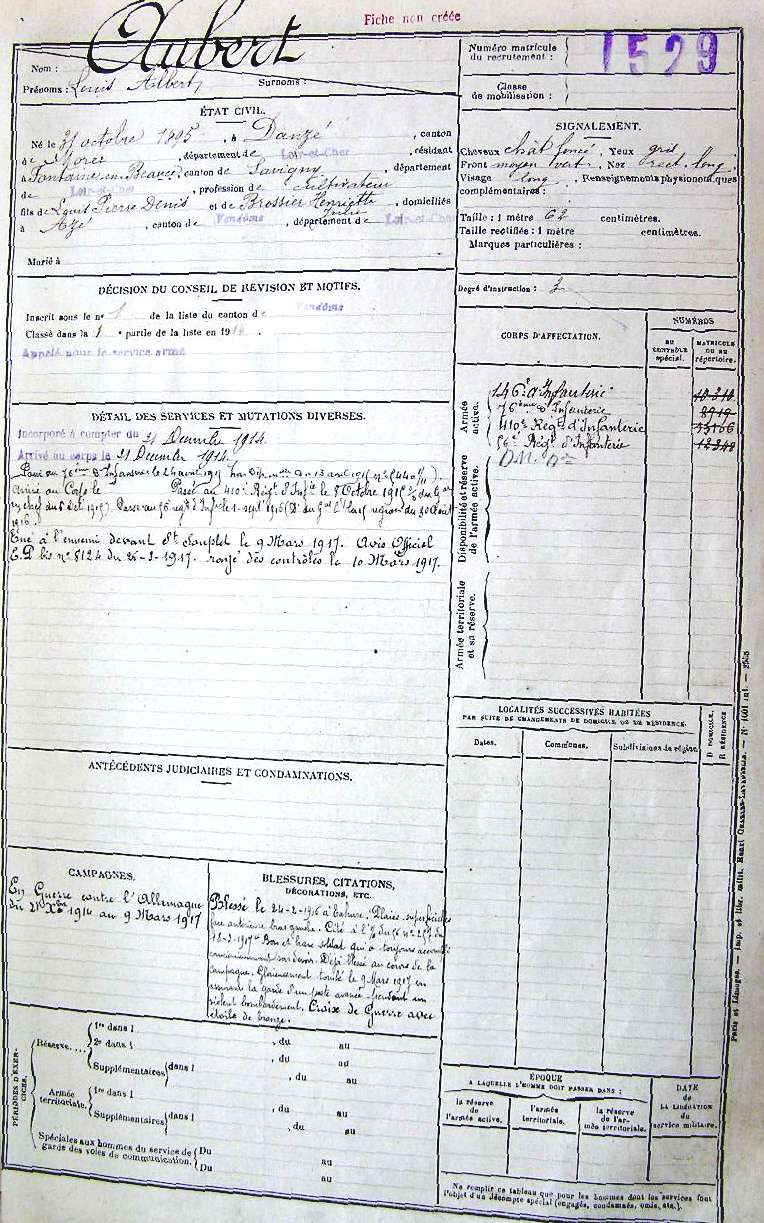 Fiche non créée
Aubert
Nom :
Prénoms : Louis Albert Surnoms :
Numéro matricule
du recrutement : 1529
Classe
de mobilisation :
ÉTAT CIVIL.
Né le 31 octobre 1895, à Danzé, canton
de Morée, département de Loir-et-Cher, résidant
à Fontaine en Beauce, canton de Savigny, département
de Loir-et-Cher, profession de cultivateur
fils de Pierre Denis et de Brossier Henriette
Julie, domiciliés
à Azé, canton de Vendôme, département de Loir-et-Cher
Marié à
SIGNALEMENT.
Cheveux chat foncé. Yeux gris
Front moyen vert. Nez rect. long.
Visage long. Renseignements physionomiques
complémentaires :
Taille : 1 mètre 62 centimètres.
Taille rectifiée : 1 mètre centimètres.
Marques particulières :
Degré d'instruction : 2
DÉCISION DU CONSEIL DE RÉVISION ET MOTIFS.
Inscrit sous le nº 1 de la liste du canton de Vendôme
Classé dans la 1 e partie de la liste en 191 .
Appelé pour le service armé
CORPS D'AFFECTATION.
NUMÉROS
AU
CONTRÔLE
spécial.
MATRICULE
OU AU
répertoire.
Armée
active.
146e d'Infanterie
76ème d'Infanterie 8919
410e Régt d'Infanterie
56e Régt d'Infanterie
Disponibilité et réserve
de l'armée active.
Armée territoriale
et sa réserve.
DÉTAIL DES SERVICES ET MUTATIONS DIVERSES.
Incorporé à compter du 21 Décembre 1914.
Arrivé au corps le 21 Décembre 1914.
Passé au 76ème d'Infanterie le 24 avril 1915 du 13 avril 1915
Arrivé au Corps le Passé au 410e Régt d'Infie le 8 Octobre 1915 du Gal
en chef du 5 Oct 1915). Passé au 56 regt d'Infie le 1 sept 1916 du Gal Ct la région du 30 Août
1916
Tué à l'ennemi devant St Souplet le 9 Mars 1917. Avis Officiel
E.P bis nº 8124 du 26-3-1917. rayé des contrôles le 10 Mars 1917.
LOCALITÉS SUCCESSIVES HABITÉES
PAR SUITE DE CHANGEMENTS DE DOMICILE OU DE RÉSIDENCE.
Dates.
Communes.
Subdivisions de région
D DOMICILE.
R RÉSIDENCE
ANTÉCÉDENTS JUDICIAIRES ET CONDAMNATIONS.
CAMPAGNES.
En Guerre contre l'Allemagne
du 21 Xbre 1914 au 9 Mars 1917
BLESSURES, CITATIONS,
DÉCORATIONS, ETC.
Blessé le 24-2-1916 à Plaies superficielles
face antérieure bras gauche. Cité à l'O du 56 nº 257 du
18-3-1917 Bon et brave soldat qui a toujours accompli
consciencieusement son devoir. Déjà blessé au cours de la
campagne. Glorieusement tombé le 9 Mars 1917 en
assurant la garde d'un poste avancé pendant un
violent bombardement. Croix de Guerre avec
étoile de bronze.
PÉRIODES D'EXERCICES.
Réserve....
1re dans l , du au
2e dans l , du au
Supplémentaires dans l , du au
Armée
territoriale.
1re dans l , du au
Supplémentaires dans l , du au
Spéciales aux hommes du service de
garde des voies de communication.
Du au
Du au
ÉPOQUE
A LAQUELLE L'HOMME DOIT PASSER DANS :
la réserve
de
l'armée active.
l'armée
territoriale.
la réserve
de l'ar-
mée territoriale.
DATE
de
LA LIBÉRATION
du
service militaire.
Ne remplir ce tableau que pour les hommes dont les services font
l'objet d'un décompte spécial (engagés, condamnés, omis, etc.).
Paris et Limoges. — Imp. et libr. milit. Henri Charles-Lavauzelle. — Nº 1001 int. —